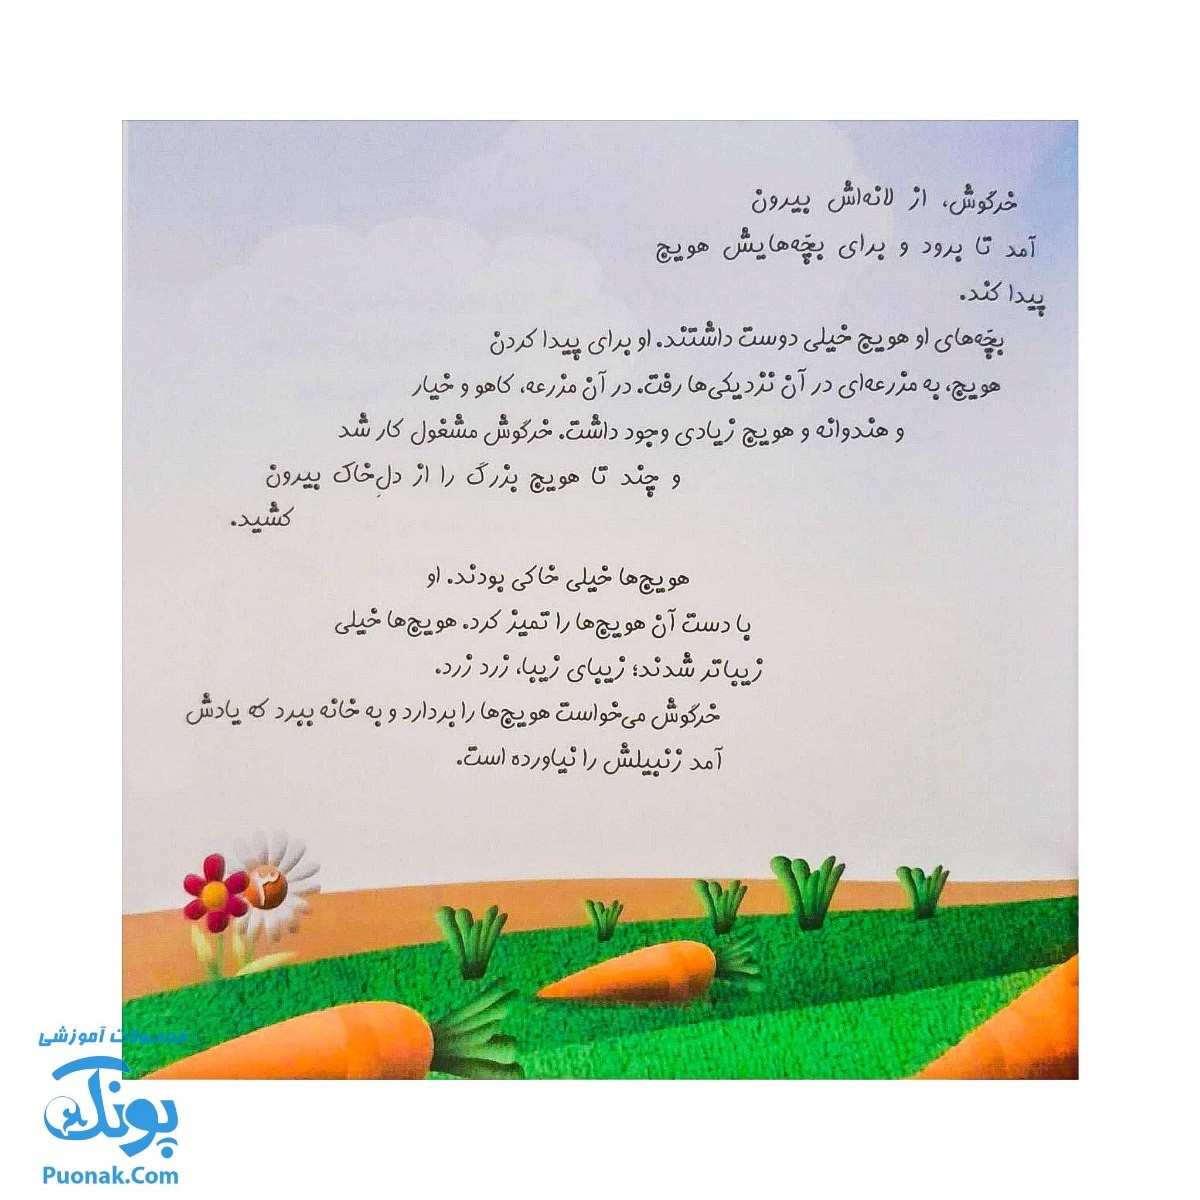 خرگوش، از لانه‌اش بیرون
آمد تا برود و برای بچّه‌هایش هویج
پیدا کند.
بچّه‌های او هویج خیلی دوست داشتند. او برای پیدا کردن
هویج، به مزرعه‌ای در آن نزدیکی‌ها رفت. در آن مزرعه، کاهو و خیار
و هندوانه و هویج زیادی وجود داشت. خرگوش مشغول کار شد
و چند تا هویج بزرگ را از دلِ خاک بیرون
کشید.
هویج‌ها خیلی خاکی بودند. او
با دست آن هویج‌ها را تمیز کرد. هویج‌ها خیلی
زیباتر شدند؛ زیبای زیبا، زرد زرد.
خرگوش می‌خواست هویج‌ها را بردارد و به خانه ببرد که یادش
آمد زنبیلش را نیاورده است.
۳
محصولات آموزشی
پونک
Puonak.Com